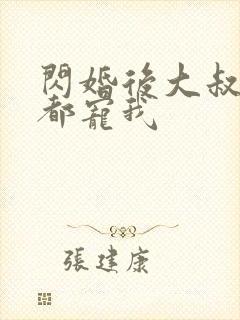 閃婚後大叔
都寵我
張建康